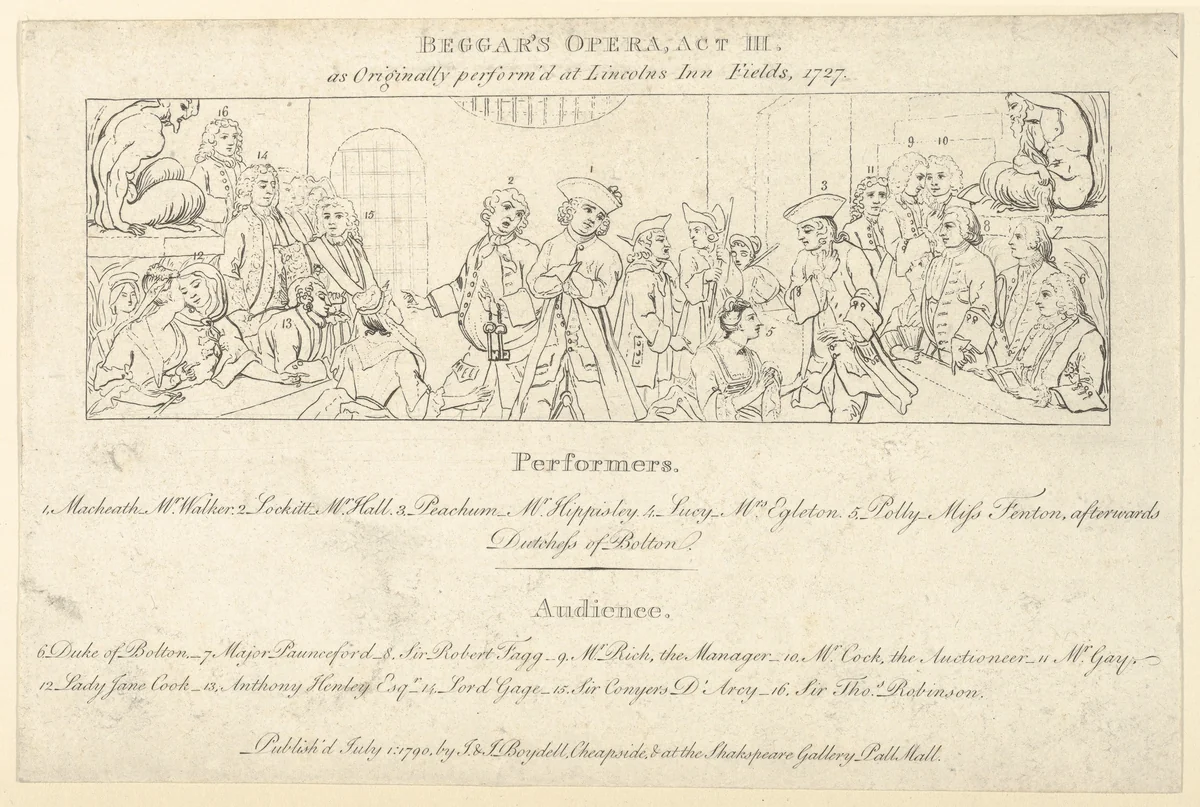 BEGGAR'S OPERA, ACT III.
as Originally perform'd at Lincolns Inn Fields, 1727.
16
14
15
12
13
4
2
1
5
3
11
9
10
8
7
6
Performers.
1, Macheath_Mr. Walker. 2_Lockitt_Mr. Hall. 3_Peachum_Mr. Hippisley. 4_Lucy_Mrs Egleton. 5_Polly_Miſs Fenton, afterwards
Dutcheſs of Bolton.
Audience.
6_Duke of Bolton._7_Major Paunceford_8. Sir Robert Fagg_9, Mr. Rich, the Manager_10. Mr. Cock, the Auctioneer_11 Mr. Gay,
12_Lady Jane Cook_13, Anthony Henley Esqr. 14_Lord Gage_15. Sir Conyers D'Arcy_16, Sir Tho.s Robinson.
Publish'd July 1: 1790, by J. & J. Boydell, Cheapside, & at the Shakspeare Gallery Pall Mall.